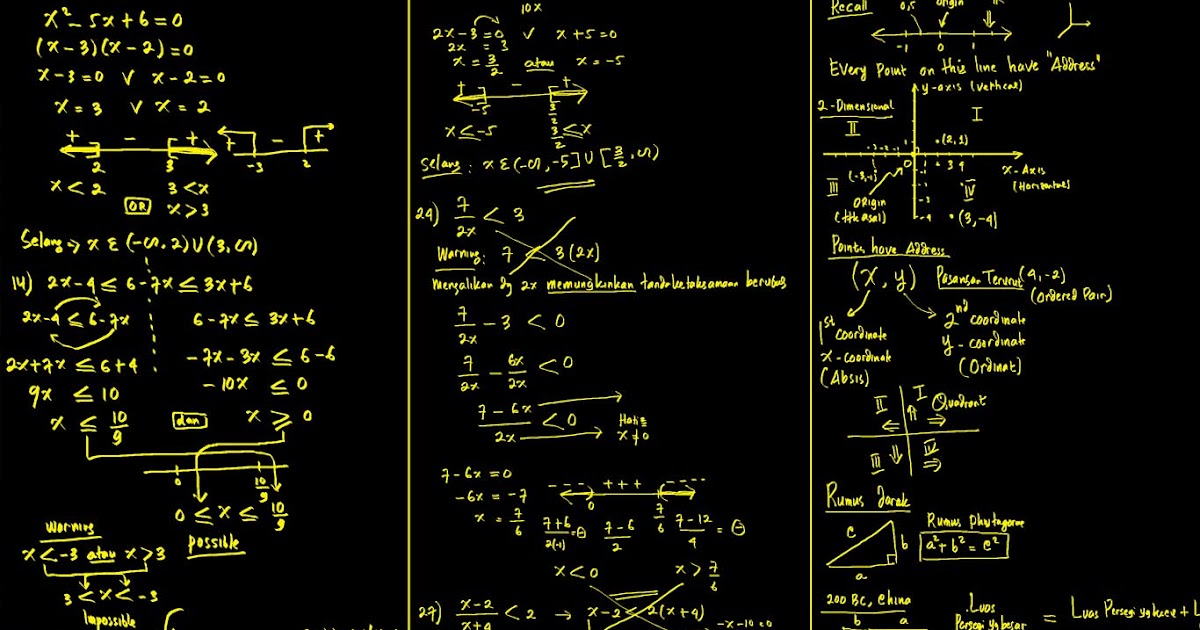 x² - 5x + 6 = 0
(x-3)(x-2) = 0
x-3=0 ∨ x-2=0
x = 3 ∨ x = 2
+ - +
2 3
+ - +
-3 2
x < 2 3 < x
OR x > 3
Selang → x ε (-∞, 2) ∪ (3, ∞)
14) 2x-4 ≤ 6-7x ≤ 3x+6
2x-4 ≤ 6-7x
2x+7x ≤ 6+4
9x ≤ 10
x ≤ 10/9
dan
6-7x ≤ 3x+6
-7x-3x ≤ 6-6
-10x ≤ 0
x ≥ 0
0 10/9
0 ≤ x ≤ 10/9
possible
Warning
x < -3 atau x > 3
3 < x < -3
Impossible
10x
2x-3=0 ∨ x+5=0
2x = 3
x = 3/2 atau x = -5
+ - +
-5 3/2
x ≤ -5 3/2 ≤ x
Selang : x ε (-∞, -5] ∪ [3/2, ∞)
24) 7/2x < 3
Warning: 7 < 3(2x)
Mengalikan dg 2x memungkinkan tanda ketaksamaan berubas
7/2x - 3 < 0
7/2x - 6x/2x < 0
7-6x/2x < 0
Hati²
x ≠ 0
7-6x = 0
-6x = -7
x = 7/6
---- +++ ----
0 7/6
7+6/2(-1) = ⊖ 7-6/2 7-12/4 = ⊖
x < 0 x > 7/6
27) x-2/x+4 < 2 → x-2 < 2(x+4)
-x-10=0
Recall
0,5 origin
-1 0 1
Every Point on this line have "Address"
y-axis (vertical)
2-Dimensional
I
II
(2,1)
x-Axis
(Horizontal)
III
(-3,-1)
IV
origin
(titik asal)
(3,-4)
Points have Address
(x, y) Pasangan Terurut (4,-2)
(Ordered Pair)
1st coordinate
x-coordinat
(Absis)
2nd coordinate
y-coordinate
(Ordinat)
II I Quadrant
III IV
Rumus Jarak
c b
a
Rumus phytagoras
a²+b² = c²
200 BC, China
b a
Luas
Persegi yg besar = Luas Persegi yg kecil + L